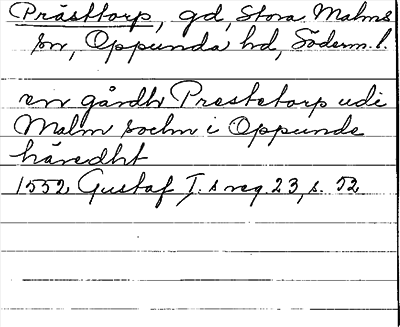 Prästtorp, gd, Stora Malms
sn, Oppunda hd, Söderm. l.
en gårdh Prestetorp udi
Malm sochn i Oppunde
häredht
1552 Gustaf I. s reg. 23, s. 52